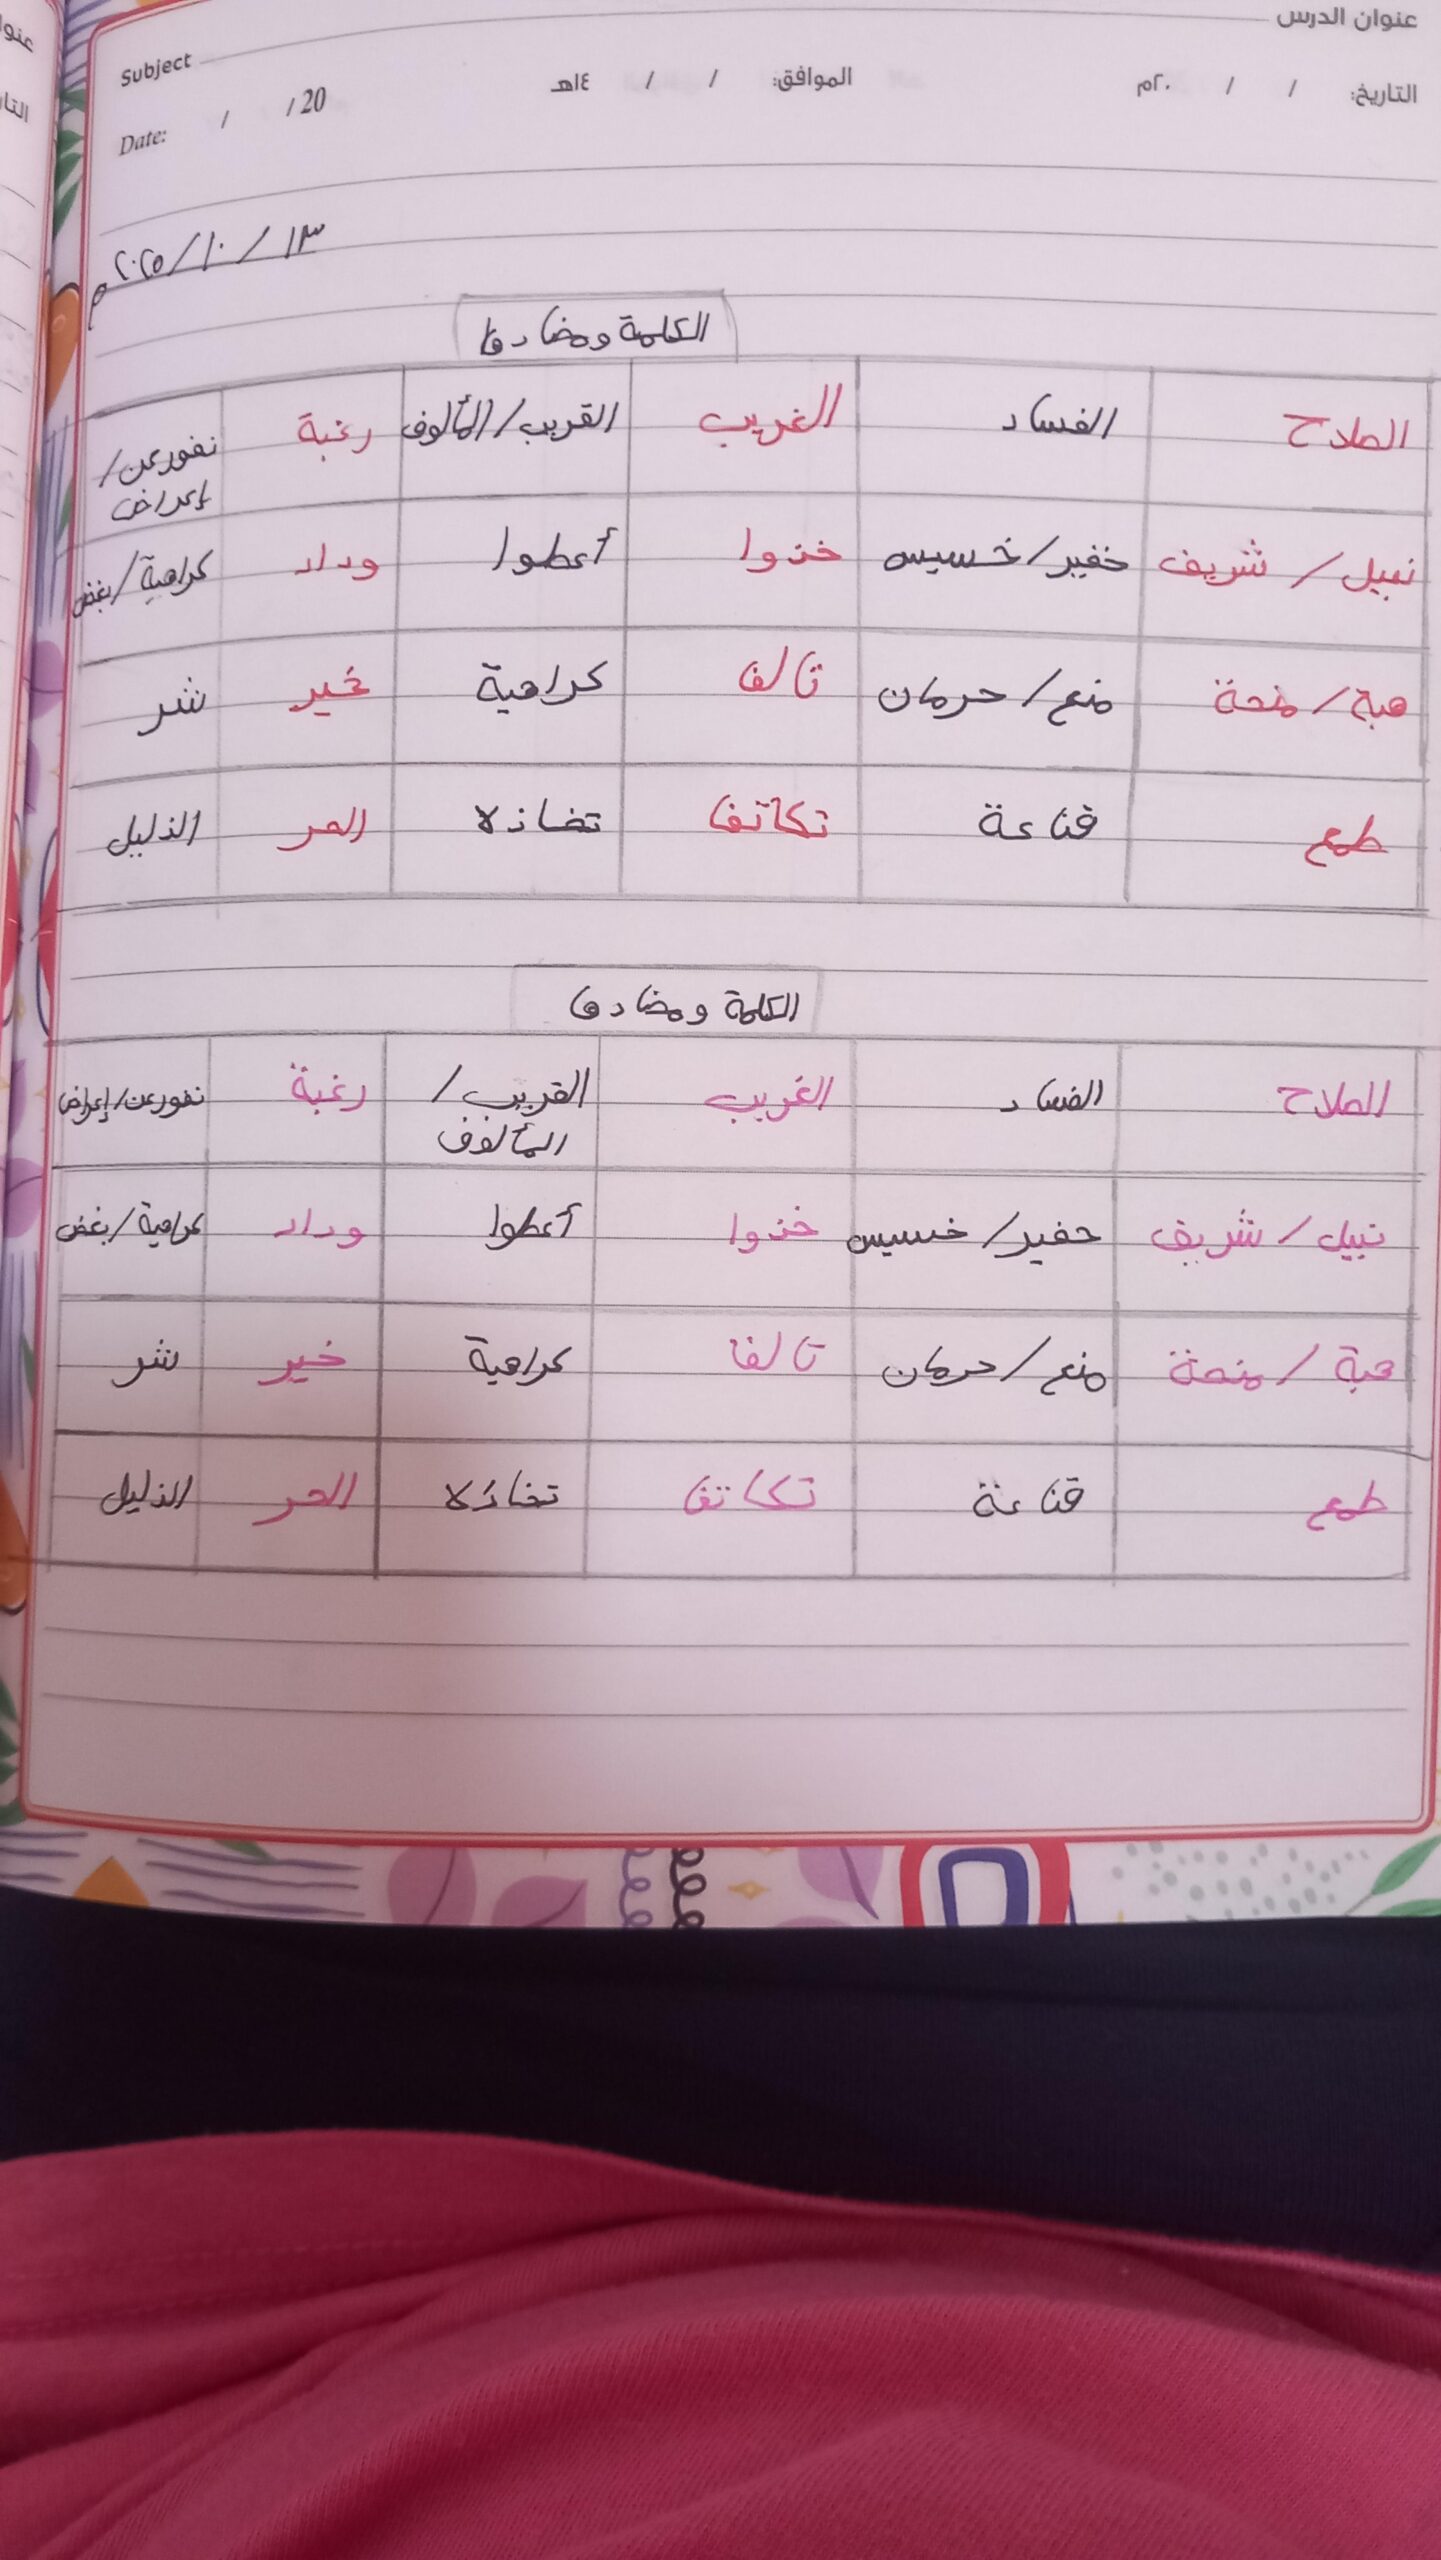 عنوان الدرس
Subject
التاريخ: / / ٢٠م الموافق: / / ١٤هـ
Date: / / 20
١٣ / ١٠ / ٢٠٢٥م
الكلمة ومضادها
الصلاح الفساد الغريب القريب/المألوف رغبة نفور عن/
إعراض
نبيل/شريف خفير/خسيس خذوا أعطوا وداد كراهية/بغض
هبة/منحة منع/حرمان تآلفا كراهية خير شر
طمع قناعة تكاتفا تخاذلا الحر الذليل
الكلمة ومضادها
الصلاح الفساد الغريب القريب/ رغبة نفور عن/إعراض
المألوف
نبيل/شريف حفير/خسيس خذوا أعطوا وداد كراهية/بغض
هبة/منحة منع/حرمان تآلفا كراهية خير شر
طمع قناعة تكاتفا تخاذلا الحر الذليل